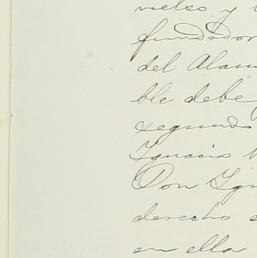 y
fundador
del Alam
ble debe
segundo
Ignacio
Don Ign
derecho
en ella